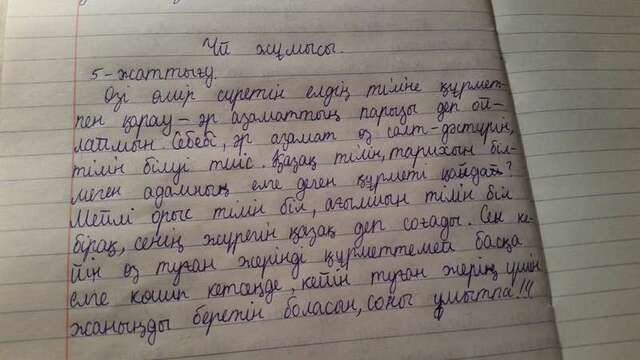 Үй жұмысы.
5-жаттығу.
Өзі өмір сүретін елдің тіліне құрмет-
пен қарау – әр азаматтың парызы деп ой-
лаймын. Себебі, әр азамат өз салт-дәстүрін,
тілін білуі тиіс. Қазақ тілін, тарихын біл-
меген адамның елге деген құрметі қандай?
Мейлі орыс тілін біл, ағылшын тілін біл
бірақ, сенің жүрегің қазақ деп соғады. Сен ке-
йін өз туған жеріңді құрметтемей басқа
елге көшіп кетсеңде, кейін туған жерің үшін
жаныңды беретін боласың, соны ұмытпа!!!